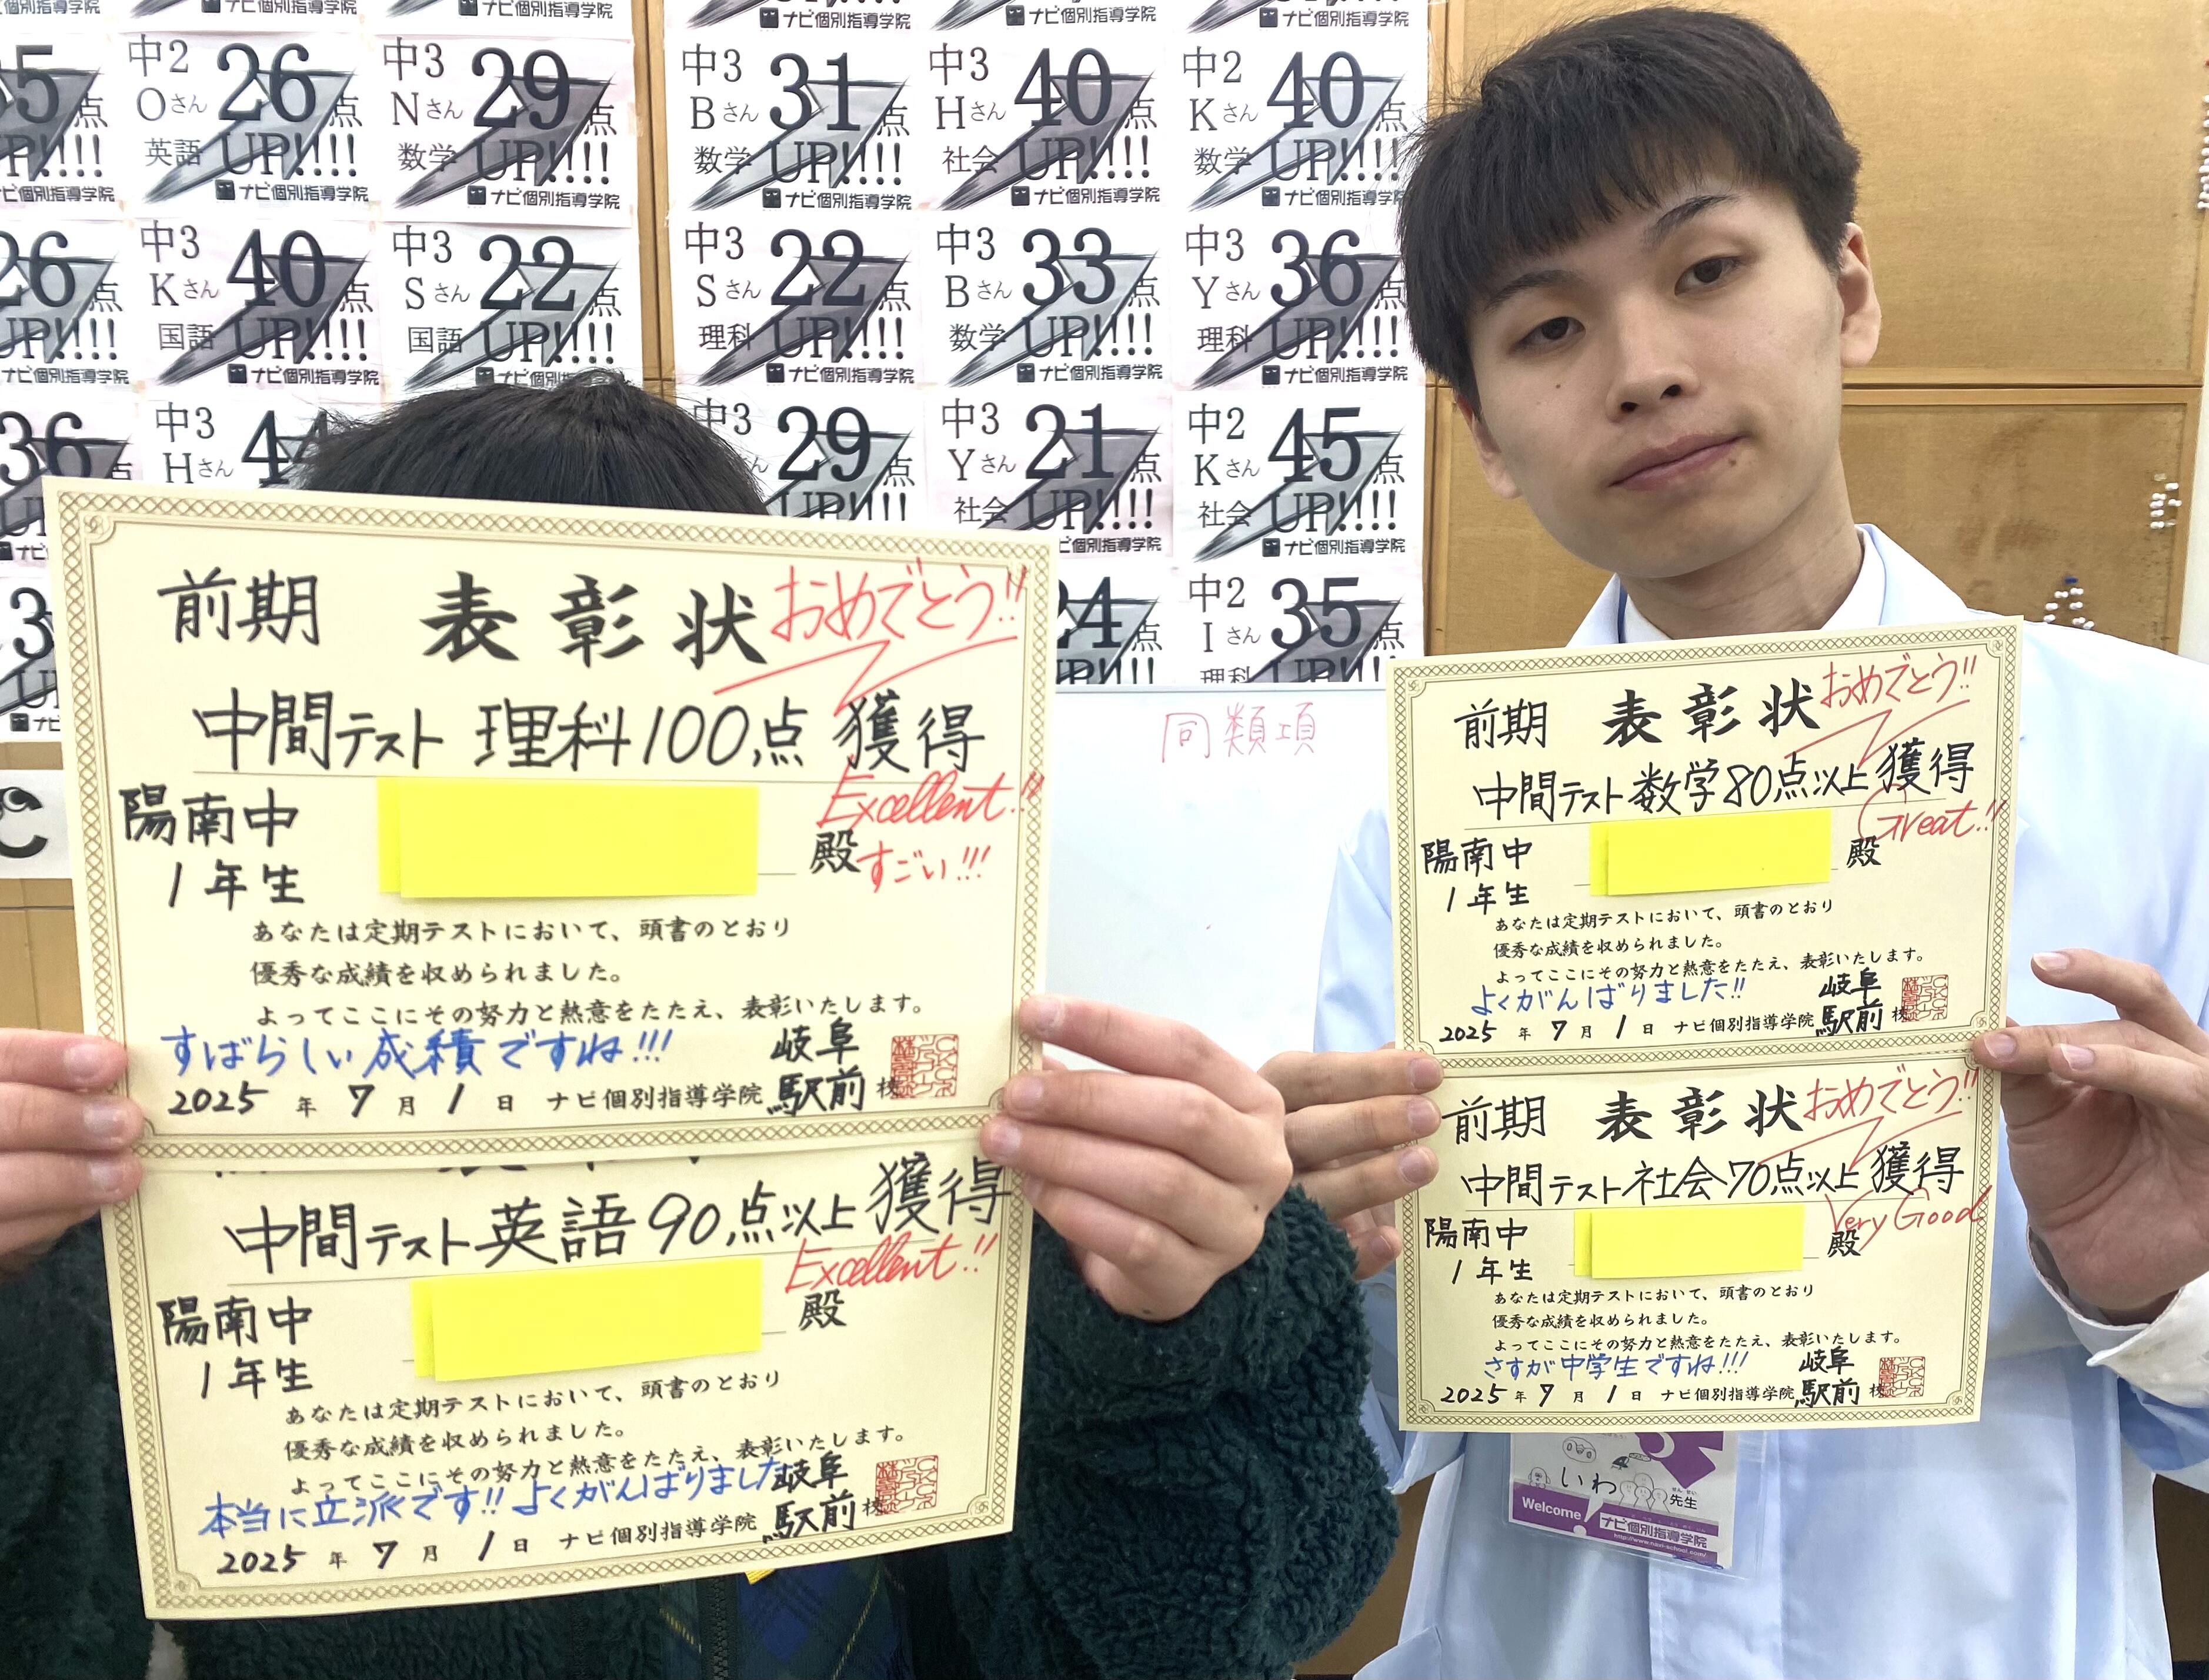 ナビ個別指導学院
ナビ個別指導学院
ナビ個別指導学院
ナビ個別指導学院
ナビ個別指導学院
中2
Oさん
英語
26点
UP!!!!
ナビ個別指導学院
中3
Nさん
数学
29点
UP!!!!
ナビ個別指導学院
中3
Bさん
数学
31点
UP!!!!
ナビ個別指導学院
中3
Hさん
社会
40点
UP!!!!
ナビ個別指導学院
中2
Kさん
数学
40点
UP!!!!
ナビ個別指導学院
26点
UP!!!!
ナビ個別指導学院
中3
Kさん
国語
40点
UP!!!!
ナビ個別指導学院
中3
Sさん
国語
22点
UP!!!!
ナビ個別指導学院
中3
Sさん
理科
22点
UP!!!!
ナビ個別指導学院
中3
Bさん
数学
33点
UP!!!!
ナビ個別指導学院
中3
Yさん
理科
36点
UP!!!!
ナビ個別指導学院
36点
中3
Hさん
中3
29点
UP!!!!
中3
Yさん
社会
21点
UP!!!!
ナビ個別指導学院
中2
Kさん
社会
45点
UP!!!!
ナビ個別指導学院
24点
UP!!!!
中2
Iさん
理科
35点
UP!!!!
同類項
前期 表彰状 おめでとう!!
中間テスト 理科100点 獲得
Excellent!!
陽南中
1年生
殿
すごい!!!
あなたは定期テストにおいて、頭書のとおり
優秀な成績を収められました。
よってここにその努力と熱意をたたえ、表彰いたします。
すばらしい成積ですね!!!
2025年7月1日 ナビ個別指導学院 岐阜駅前校
中間テスト英語90点以上獲得
Excellent!!
陽南中
1年生
殿
あなたは定期テストにおいて、頭書のとおり
優秀な成績を収められました。
よってここにその努力と熱意をたたえ、表彰いたします。
本当に立派です!! よくがんばりました
2025年7月1日 ナビ個別指導学院 岐阜駅前校
前期 表彰状 おめでとう!!
中間テスト数学80点以上獲得
Great!!
陽南中
1年生
殿
あなたは定期テストにおいて、頭書のとおり
優秀な成績を収められました。
よってここにその努力と熱意をたたえ、表彰いたします。
よくがんばりました!!
2025年7月1日 ナビ個別指導学院 岐阜駅前校
前期 表彰状 おめでとう!!
中間テスト社会70点以上獲得
Very Good
陽南中
1年生
殿
あなたは定期テストにおいて、頭書のとおり
優秀な成績を収められました。
よってここにその努力と熱意をたたえ、表彰いたします。
さすが中学生ですね!!!
2025年7月1日 ナビ個別指導学院 岐阜駅前校
いわ
せんせい
先生
Welcome
ナビ個別指導学院
http://www.navi-school.com/